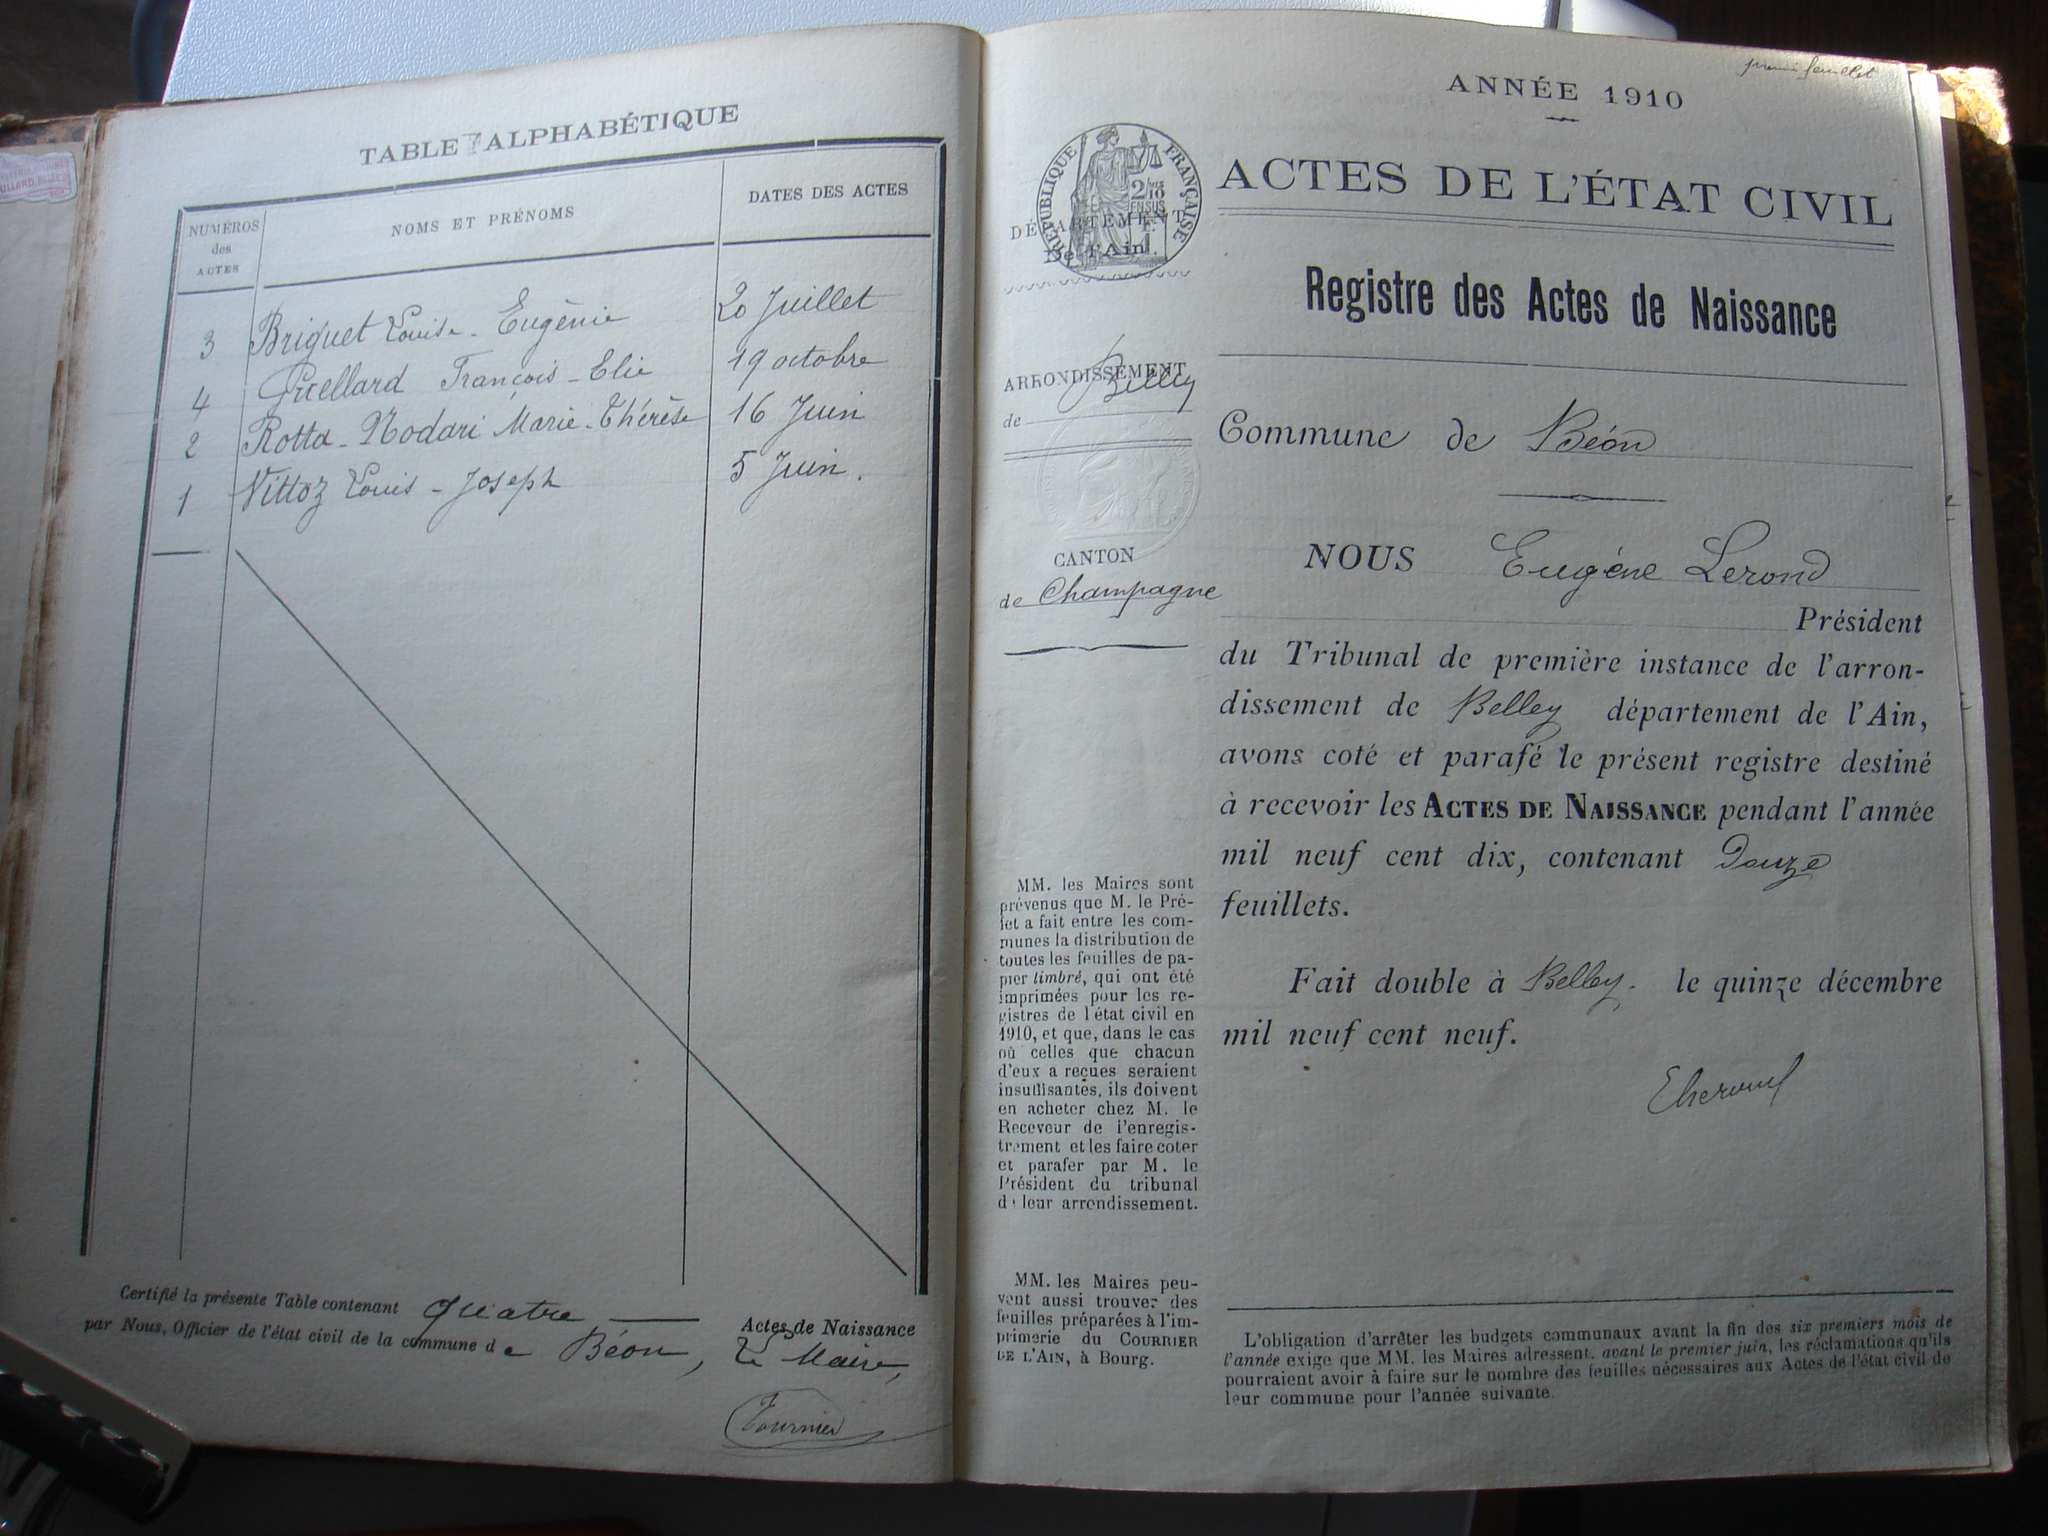 TABLE ALPHABÉTIQUE
NUMÉROS
des
ACTES
NOMS ET PRÉNOMS
DATES DES ACTES
3 Briguet Louise - Eugènie 20 Juillet
4 François - Elie 19 octobre
2 Rotta - Nodari Marie - Thérèse 16 Juin
1 Vittoz Louis - Joseph 5 Juin.
Certifié la présente Table contenant quatre Actes de Naissance
par Nous, Officier de l'état civil de la commune de Béon, Le Maire,
Fournier
premier feuillet
ANNÉE 1910
RÉPUBLIQUE FRANÇAISE
DÉPARTEMENT
De l'Ain.
ARRONDISSEMENT
de Belley
CANTON
de Champagne
MM. les Maires sont
prévenus que M. le Pré-
fet a fait entre les com-
munes la distribution de
toutes les feuilles de pa-
pier timbré, qui ont été
imprimées pour les re-
gistres de l'état civil en
1910, et que, dans le cas
où celles que chacun
d'eux a reçues seraient
insuffisantes, ils doivent
en acheter chez M. le
Receveur de l'enregis-
trement et les faire coter
et parafer par M. le
Président du tribunal
de leur arrondissement.
MM. les Maires peu-
vent aussi trouver des
feuilles préparées à l'im-
primerie du COURRIER
DE L'AIN, à Bourg.
ACTES DE L'ÉTAT CIVIL
Registre des Actes de Naissance
Commune de Béon
NOUS Eugéne Lerond
Président
du Tribunal de première instance de l'arron-
dissement de Belley département de l'Ain,
avons coté et parafé le présent registre destiné
à recevoir les ACTES DE NAISSANCE pendant l'année
mil neuf cent dix, contenant Douze
feuillets.
Fait double à Belley. le quinze décembre
mil neuf cent neuf.
L'obligation d'arrêter les budgets communaux avant la fin des six premiers mois de
l'année exige que MM. les Maires adressent, avant le premier juin, les réclamations qu'ils
pourraient avoir à faire sur le nombre des feuilles nécessaires aux Actes de l'état civil de
leur commune pour l'année suivante.